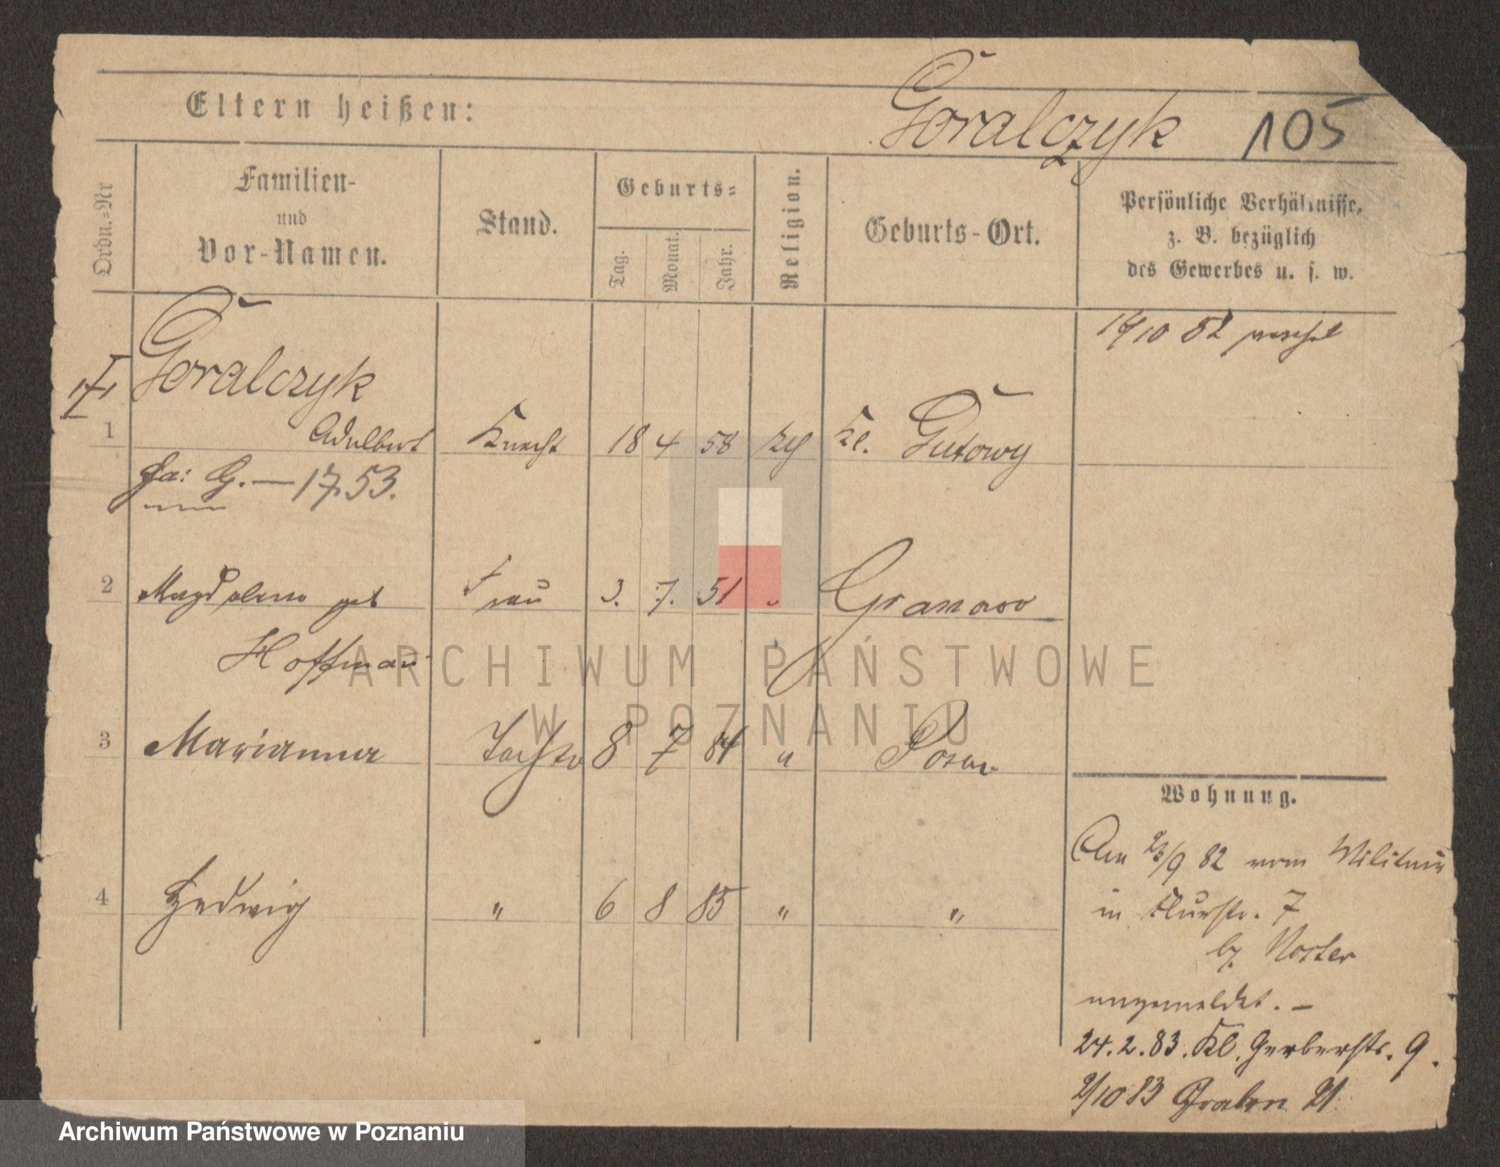 Eltern heißen:
Goralczyk 105
Ordn.-Nr
Familien-
und
Vor-Namen.
Stand.
Geburts-
Tag. Monat. Jahr.
Religion.
Geburts-Ort.
Persönliche Verhältnisse,
z. B. bezüglich
des Gewerbes u. s. w.
Goralczyk
1 Adalbert Knecht 18 4 58 Kl. Gutowy
G. — 1753.
2 Magdalena geb Frau 3. 7. 51 " Granowo
Hoffmann
3 Marianna Tochter 8 7 84 " Posen
4 Hedwig " 6 8 85 " "
Wohnung.
Am /9 82 vom Militair
in Flurstr. 7
b. Noster
angemeldet. —
24. 2. 83. Kl. Gerberstr. 9.
2/10 83 Graben 21
ARCHIWUM PAŃSTWOWE
W POZNANIU
Archiwum Państwowe w Poznaniu